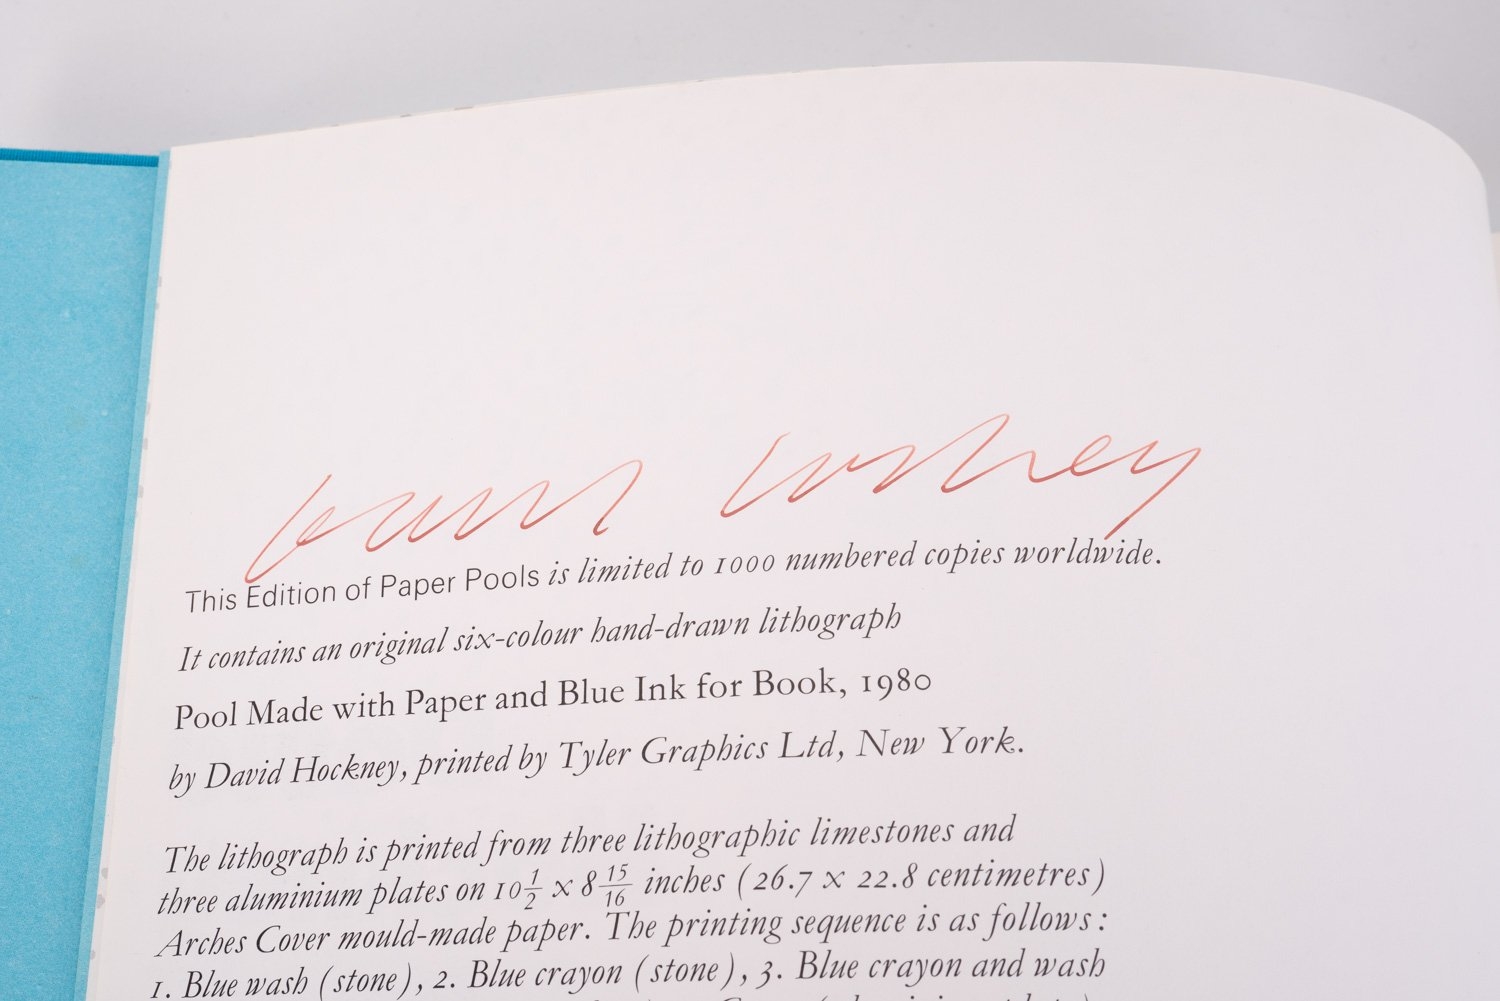 David Hockney
This Edition of Paper Pools is limited to 1000 numbered copies worldwide.
It contains an original six-colour hand-drawn lithograph
Pool Made with Paper and Blue Ink for Book, 1980
by David Hockney, printed by Tyler Graphics Ltd, New York.
The lithograph is printed from three lithographic limestones and
three aluminium plates on 10 1/2 x 8 15/16 inches (26.7 x 22.8 centimetres)
Arches Cover mould-made paper. The printing sequence is as follows:
1. Blue wash (stone), 2. Blue crayon (stone), 3. Blue crayon and wash